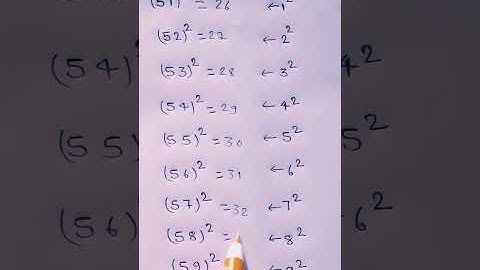 (51)² = 26 ←1²
(52)² = 27 ← 2²
(53)² = 28 ← 3²
(54)² = 29 ← 4²
(55)² = 30 ← 5²
(56)² = 31 ← 6²
(57)² = 32 ← 7²
(58)² = ← 8²
(59)²